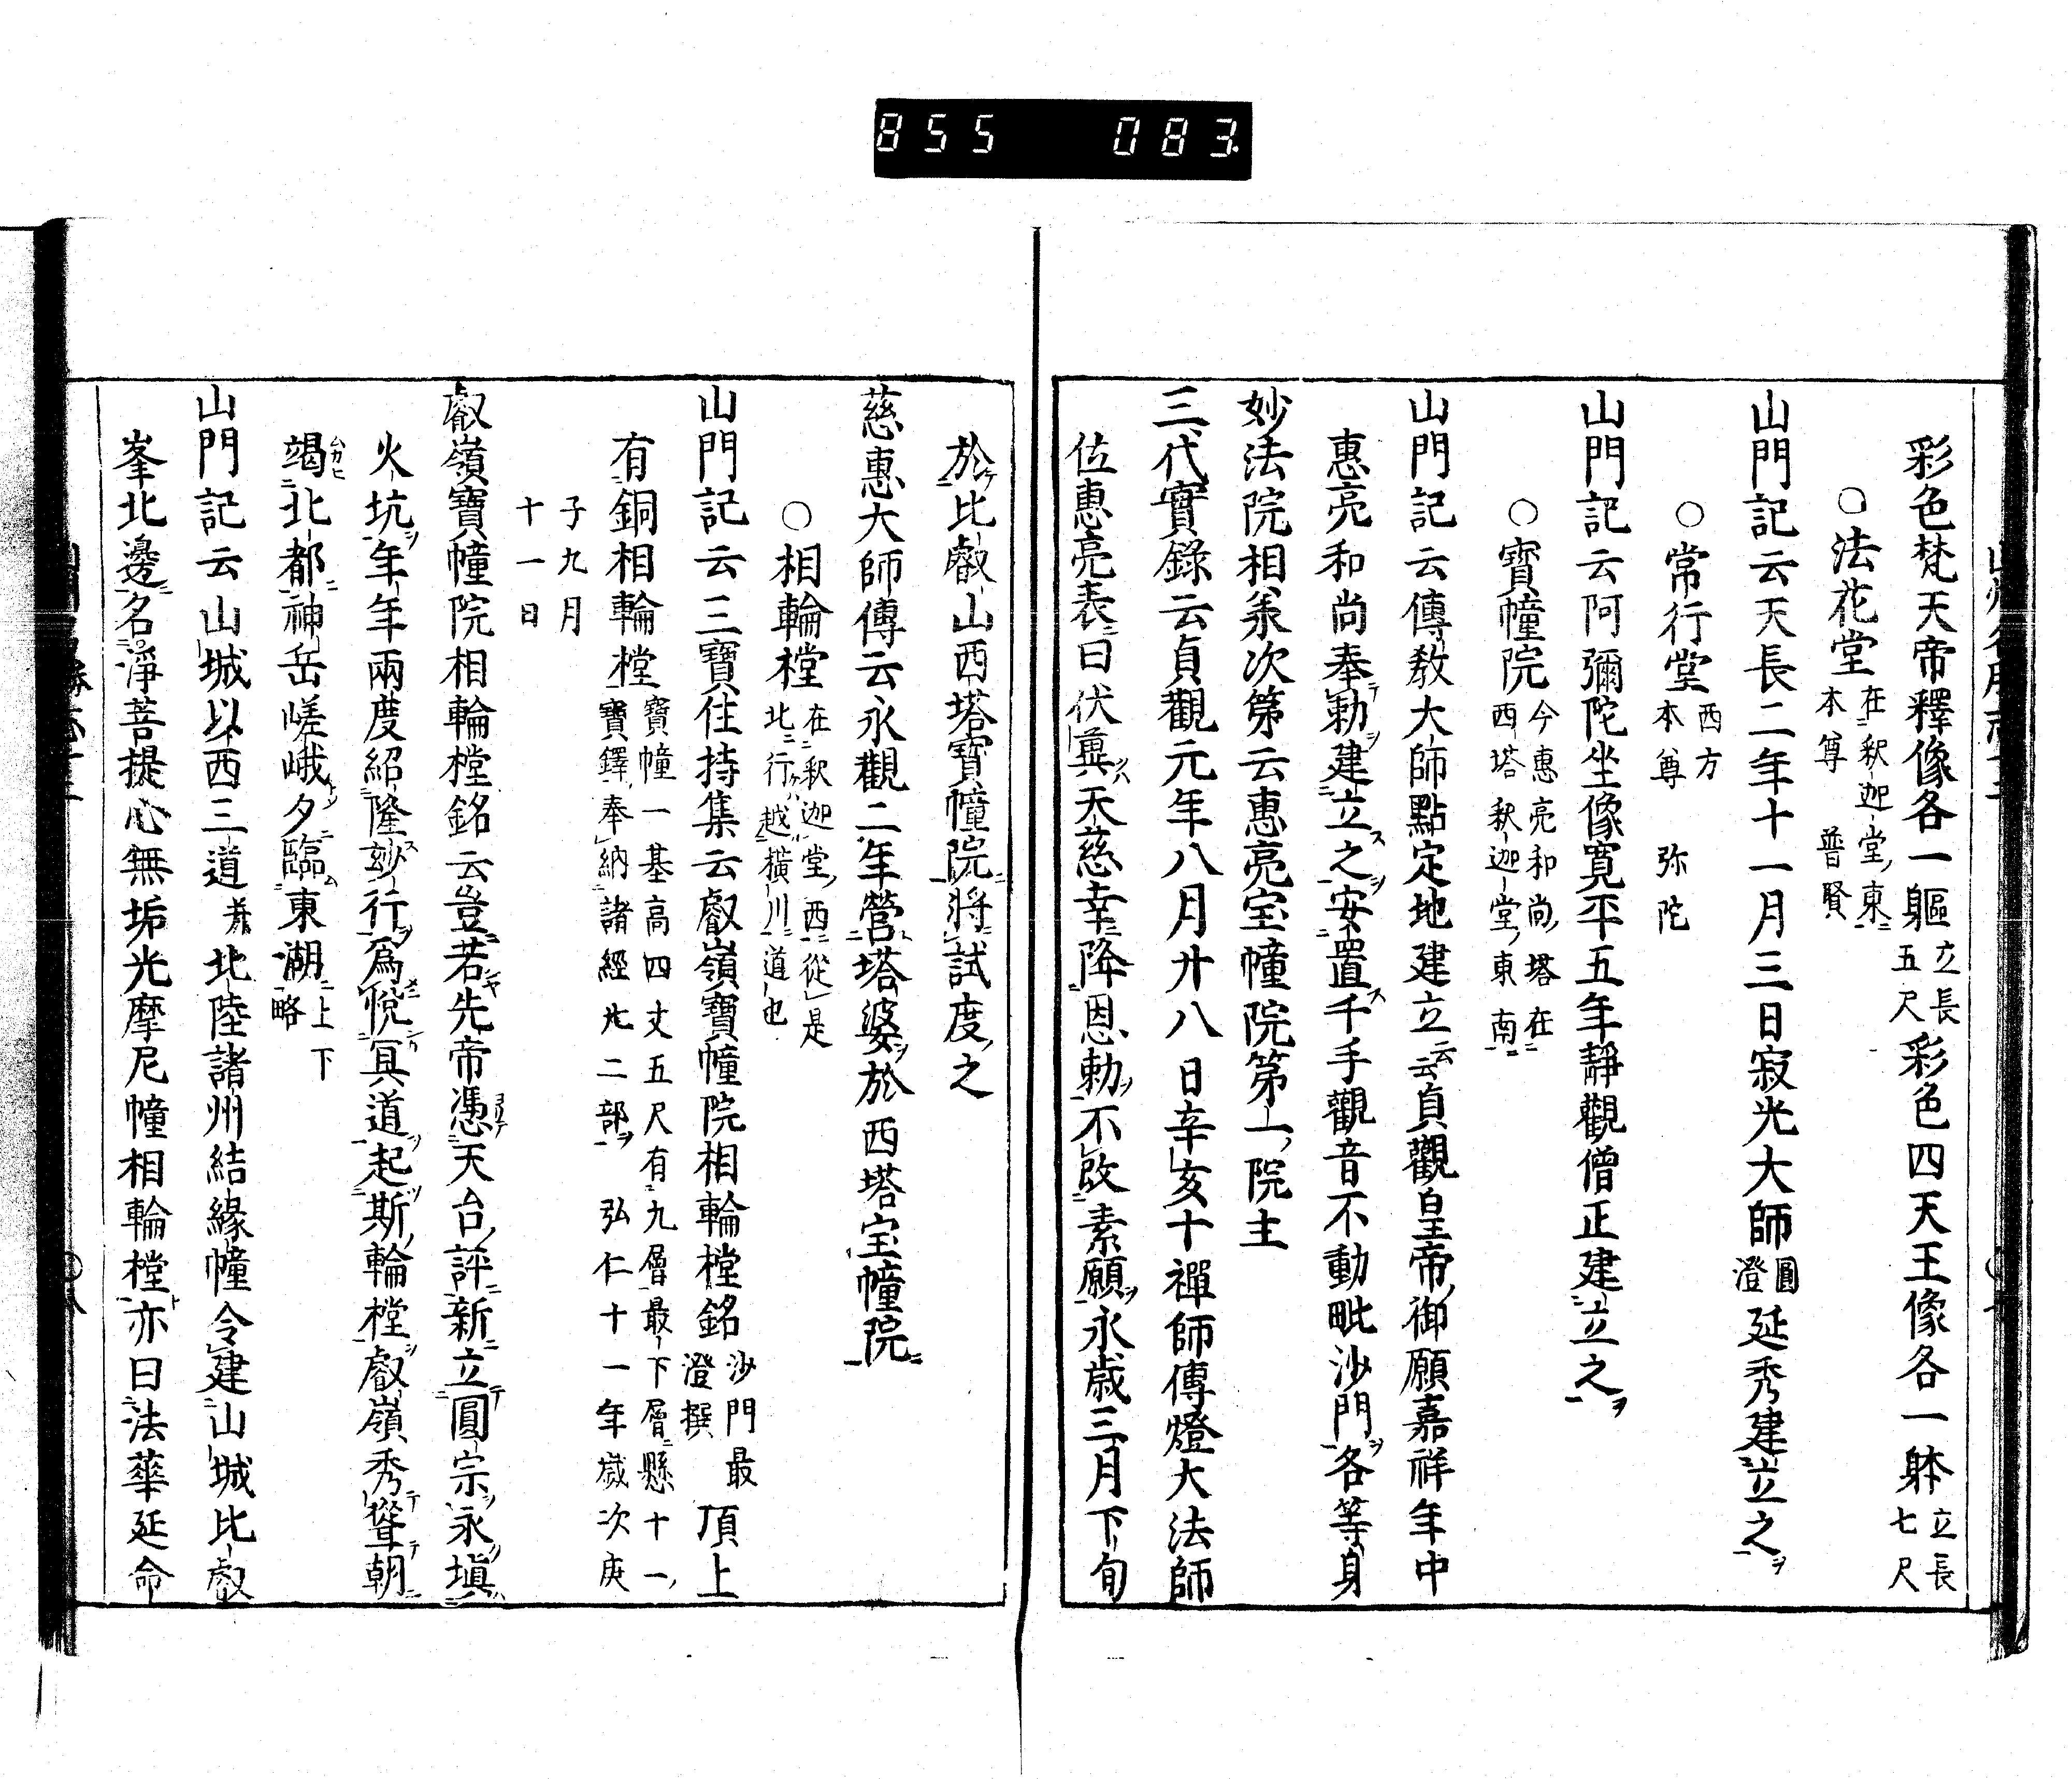 855 083
彩色梵天帝釋像各一軀立長五尺彩色四天王像各一躰立長七尺
○法花堂在釈迦堂東本尊普賢
山門記云天長二年十一月三日寂光大師圓澄延秀建立之
○常行堂西方本尊弥陀
山門記云阿彌陀坐像寛平五年靜觀僧正建立之
○寶幢院今惠亮和尚塔在西塔釈迦堂東南
山門記云傳教大師點定地建立云云貞觀皇帝御願嘉祥年中
惠亮和尚奉勅建立之安置千手觀音不動毗沙門各等身
妙法院相承次第云惠亮宝幢院第一院主
三代實錄云貞觀元年八月廿八日辛亥十禪師傳燈大法師
位惠亮表曰伏冀天慈幸降恩勅不改素願永歳三月下旬
於比叡山西塔寶幢院將試度之
慈惠大師傳云永觀二年營塔婆於西塔宝幢院
○相輪樘在釈迦堂西從是北行越横川道也
山門記云三寶住持集云叡嶺寶幢院相輪樘銘沙門最澄撰頂上
有銅相輪樘寶幢一基高四丈五尺有九層最下層懸十一寶鐸奉納諸經廾二部弘仁十一年歳次庚
子九月十一日
叡嶺寶幢院相輪樘銘云豈若先帝憑天台評新立圓宗永塡
火坑年年兩度紹隆玅行爲悅冥道起斯輪樘叡嶺秀聳朝
竭北都神岳嵯峨夕臨東湖上下略
山門記云山城以西三道兼北陸諸州結緣幢令建山城比叡
峯北邊名淨菩提心無垢光摩尼幢相輪樘亦曰法華延命